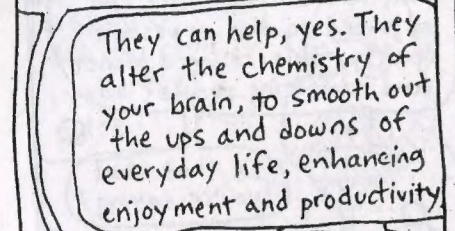 They can help, yes. They
alter the chemistry of
your brain, to smooth out
the ups and downs of
everyday life, enhancing
enjoyment and productivity